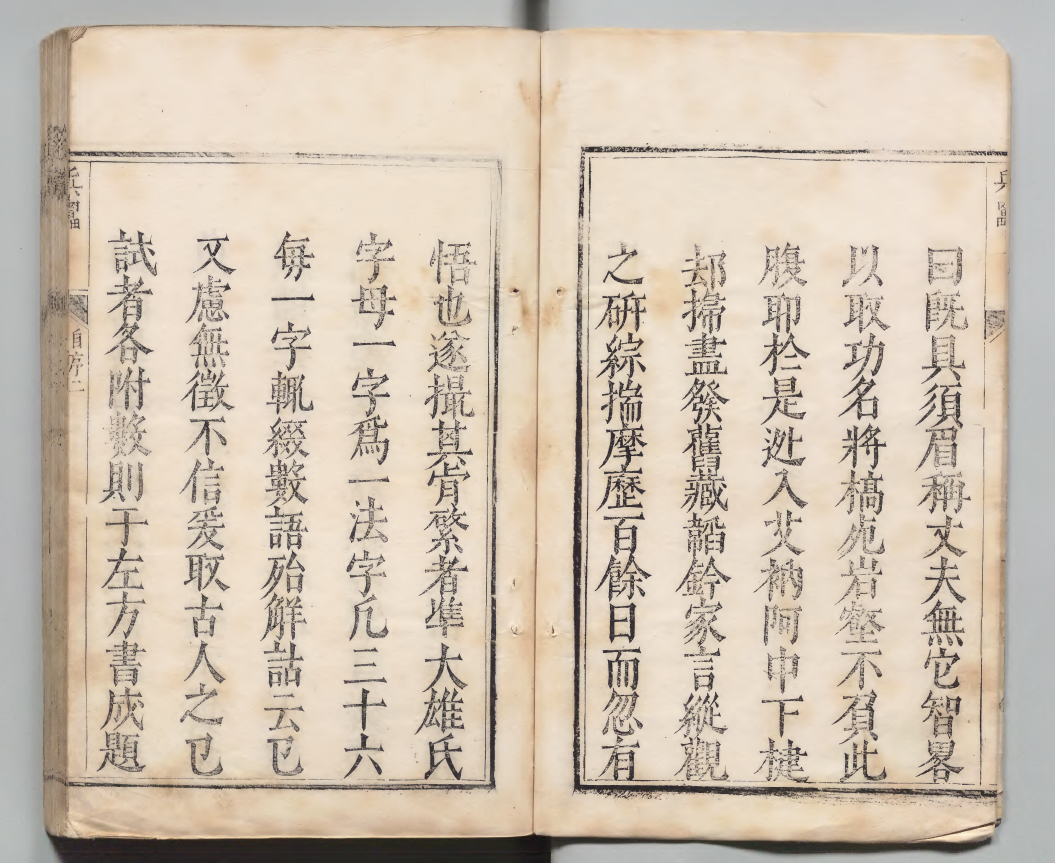 曰旣具須眉稱丈夫無它智畧
以取功名將槁死岩壑不負此
腹耶於是迯入艾衲阿中下楗
却掃盡發舊藏韜鈐家言縱觀
之硏綜揣摩歷百餘日而忽有
悟也遂撮其肯綮者準大雄氏
字母一字爲一法字凡三十六
每一字輒綴數語殆解詁云已
又慮無徵不信爰取古人之已
試者各附數則于左方書成題
兵𤲞
自序二